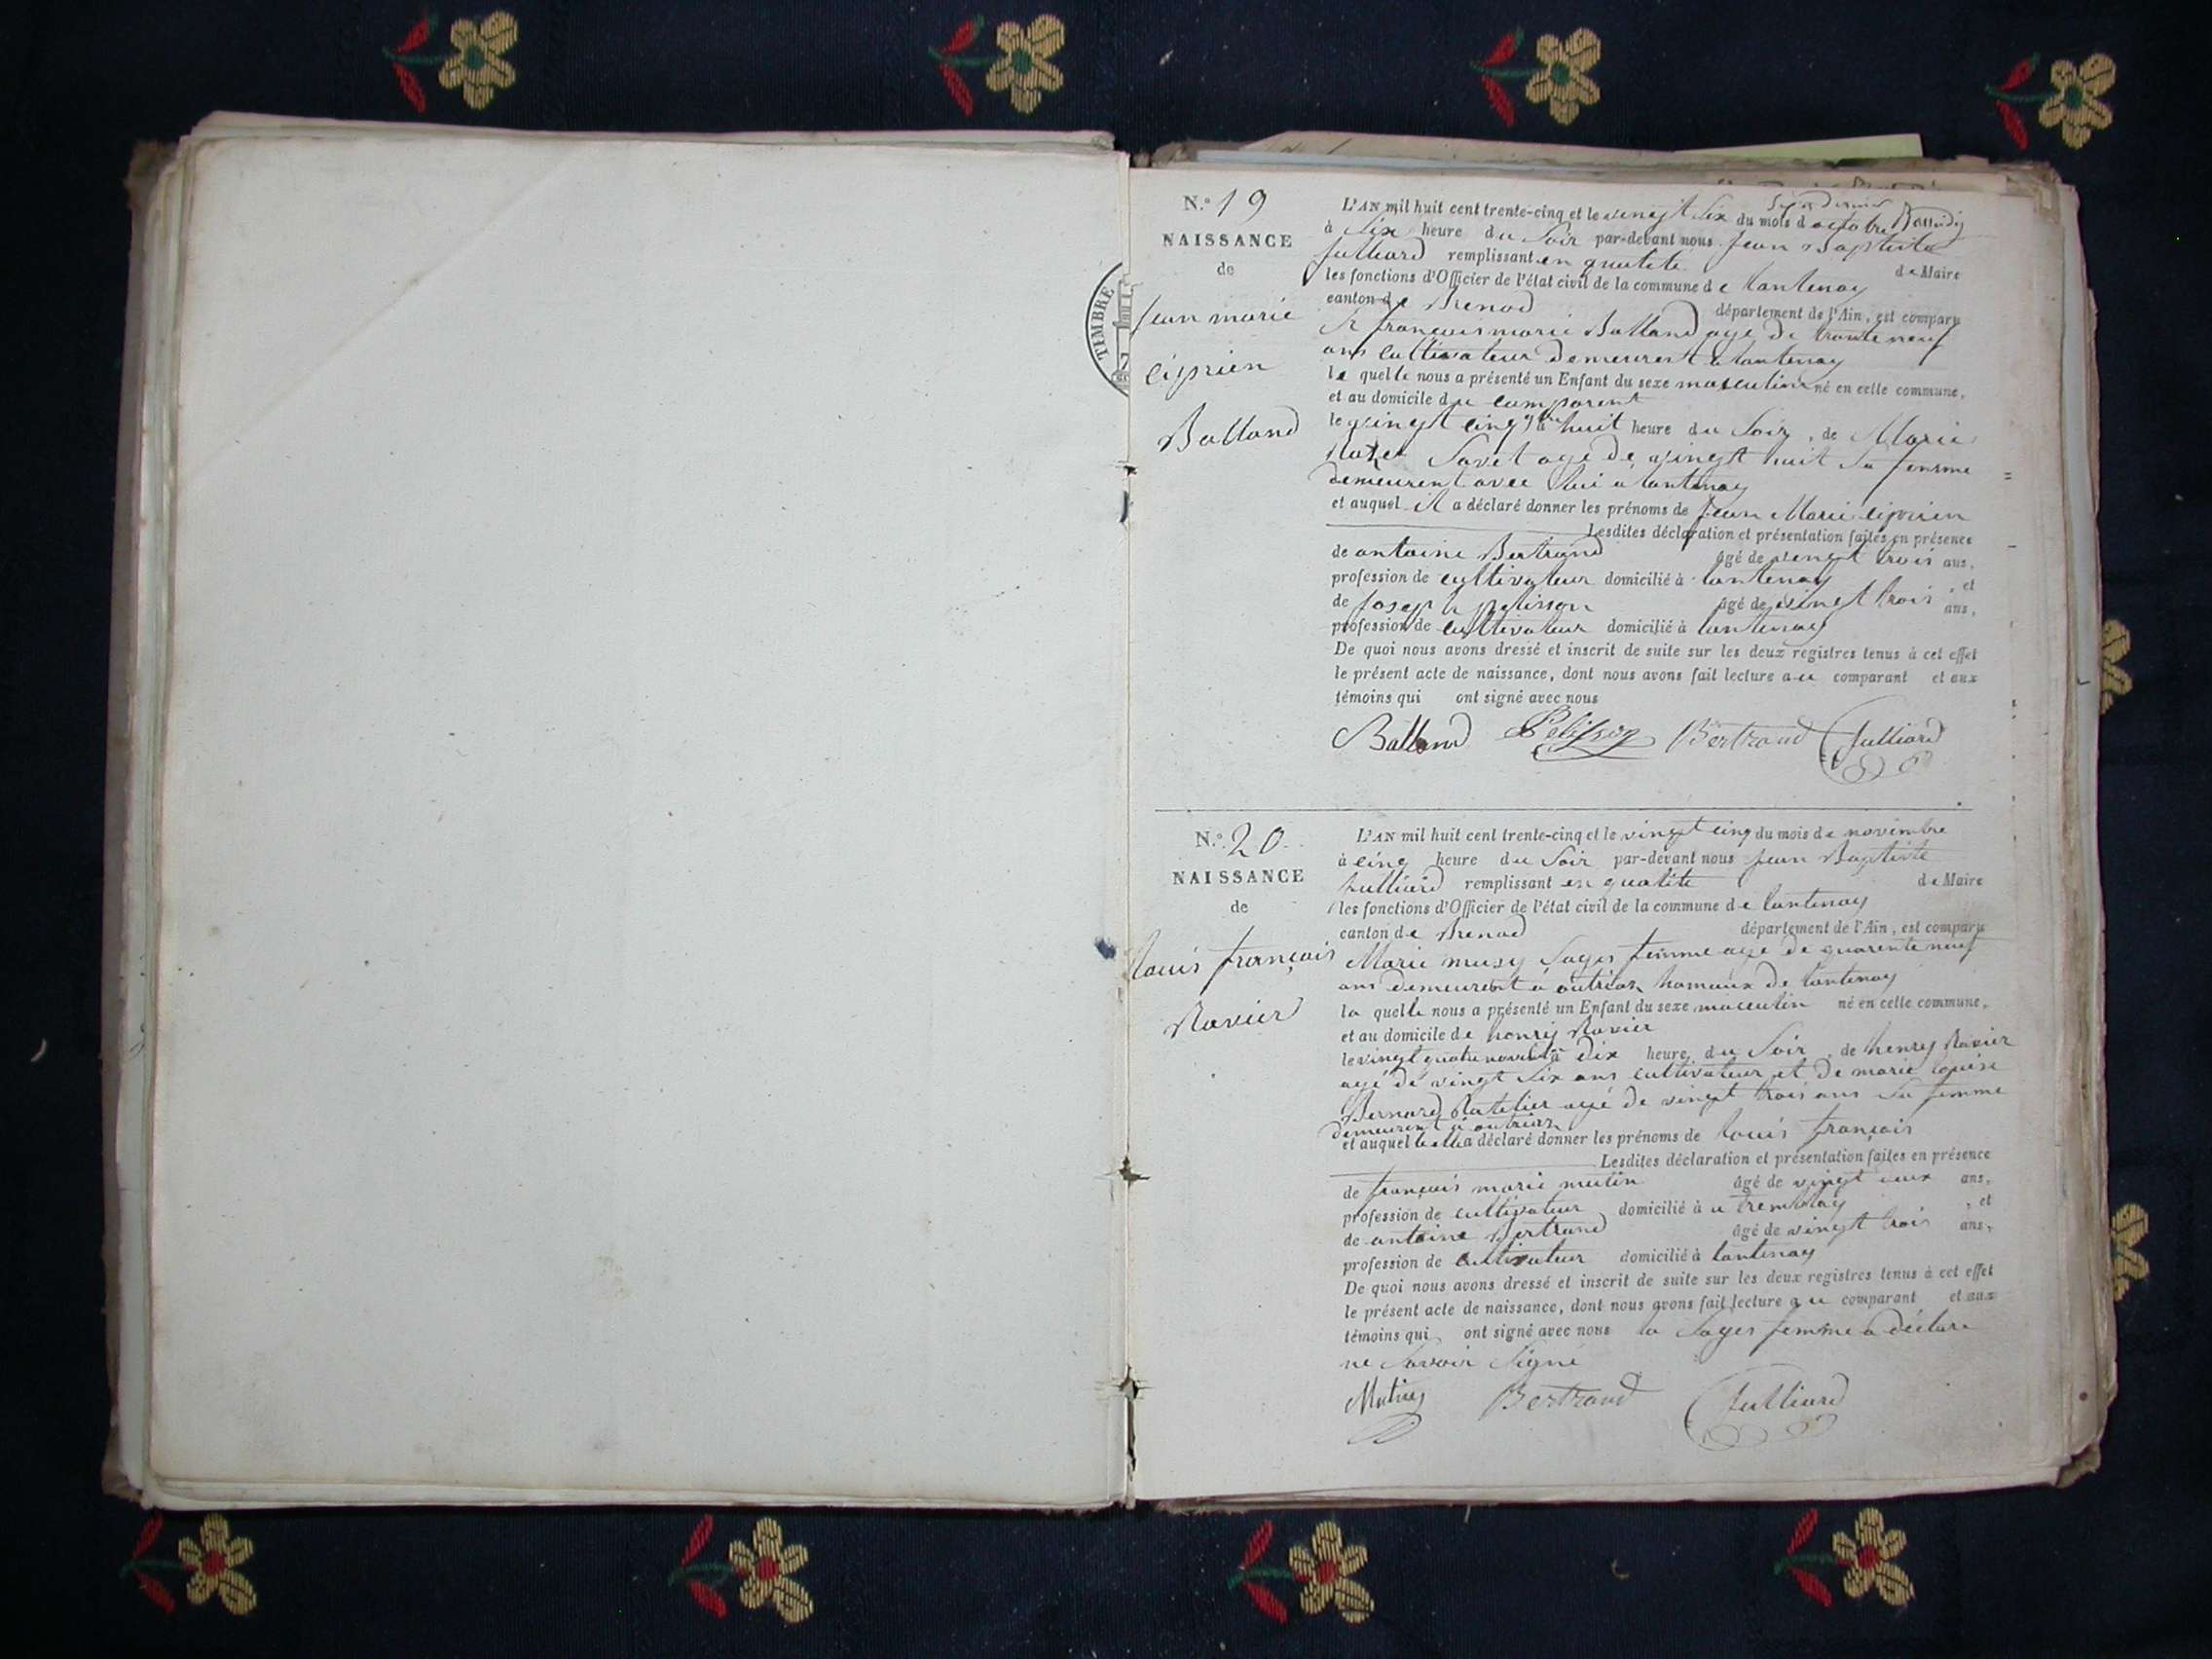 N.º 19
NAISSANCE
de
Jean marie
ciprien
Balland
TIMBRE
L'AN mil huit cent trente-cinq et le vingt Six du mois d octobre
à Six heure du Soir par-devant nous Jean Baptiste
Julliard remplissant en qualité de Maire
les fonctions d'Officier de l'état civil de la commune de lantenay
canton de Brenod département de l'Ain, est comparu
Sr françois marie Balland age de trante neuf
ans cultivateur demeurent a lantenay
le quelle nous a présenté un Enfant du sexe masculin né en celle commune,
et au domicile du comparent
le vingt cinq à huit heure du Soir, de Marie
Savet age de vingt huit Sa femme
demeurent avec lui a lantenay
et auquel il a déclaré donner les prénoms de Jean Marie ciprien
Lesdites déclaration et présentation faites en présence
de antoine Bertrand âgé de vingt trois ans,
profession de cultivateur domicilié à lantenay, et
de Joseph pelisson âgé de vingt trois ans,
profession de cultivateur domicilié à lantenay
De quoi nous avons dressé et inscrit de suite sur les deux registres tenus à cet effet
le présent acte de naissance, dont nous avons fait lecture au comparant et aux
témoins qui ont signé avec nous
Balland Pelisson Bertrand Julliard
N.º 20
NAISSANCE
de
louis françois
Ravier
L'AN mil huit cent trente-cinq et le vingt cinq du mois de novembre
à cinq heure du Soir par-devant nous Jean Baptiste
Julliard remplissant en qualité de Maire
les fonctions d'Officier de l'état civil de la commune de lantenay
canton de Brenod département de l'Ain, est comparu
Marie musy Sages femme age de quarente neuf
ans demeurent a outriaz hamaux de lantenay
la quelle nous a présenté un Enfant du sexe masculin né en celle commune,
et au domicile de henry Ravier
le vingt quatre novembre à dix heure du Soir, de henry Ravier
agé de vingt Six ans cultivateur et de marie louise
Bernard Ratelier agé de vingt trois ans Sa femme
demeurent a outriaz
et auquel a déclaré donner les prénoms de louis françois
Lesdites déclaration et présentation faites en présence
de françois marie mutin âgé de vingt ans,
profession de cultivateur domicilié à a tremblay, et
de antoine Bertrand âgé de vingt trois ans,
profession de cultivateur domicilié à lantenay
De quoi nous avons dressé et inscrit de suite sur les deux registres tenus à cet effet
le présent acte de naissance, dont nous avons fait lecture au comparant et aux
témoins qui ont signé avec nous la Sages femme a déclare
ne Savoir Signé
Bertrand Julliard